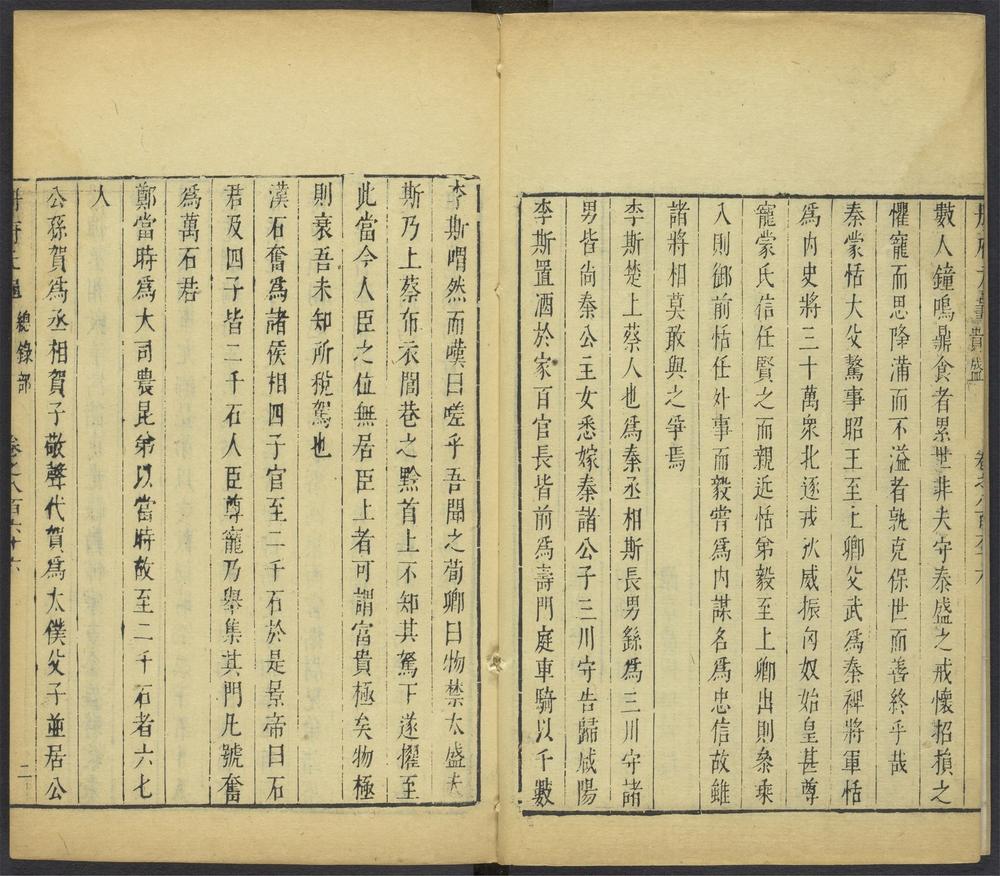 冊府元龜貴盛 卷之八百六十六
數人鐘鳴鼎食者累世非夫守泰盛之戒懷招損之
懼寵而思降滿而不溢者孰克保世而善終乎哉
秦蒙恬大父驁事昭王至上卿父武爲秦裨將軍恬
爲內史將三十萬衆北逐戎狄威振匈奴始皇甚尊
寵蒙氏信任賢之而親近恬弟毅至上卿出則參乘
入則御前恬任外事而毅嘗爲內謀名爲忠信故雖
諸將相莫敢與之爭焉
李斯楚上蔡人也爲秦丞相斯長男繇爲三川守諸
男皆尚秦公主女悉嫁秦諸公子三川守告歸咸陽
李斯置酒於家百官長皆前爲壽門庭車騎以千數
李斯喟然而嘆曰嗟乎吾聞之荀卿曰物禁太盛夫
斯乃上蔡布衣閭巷之黔首上不知其駑下遂擢至
此當今人臣之位無居臣上者可謂富貴極矣物極
則衰吾未知所稅駕也
漢石奮爲諸侯相四子官至二千石於是景帝曰石
君及四子皆二千石人臣尊寵乃舉集其門凡號奮
爲萬石君
鄭當時爲大司農昆弟以當時故至二千石者六七
人
公孫賀爲丞相賀子敬聲代賀爲太僕父子並居公
冊府元龜總錄部 卷之八百六十六 二